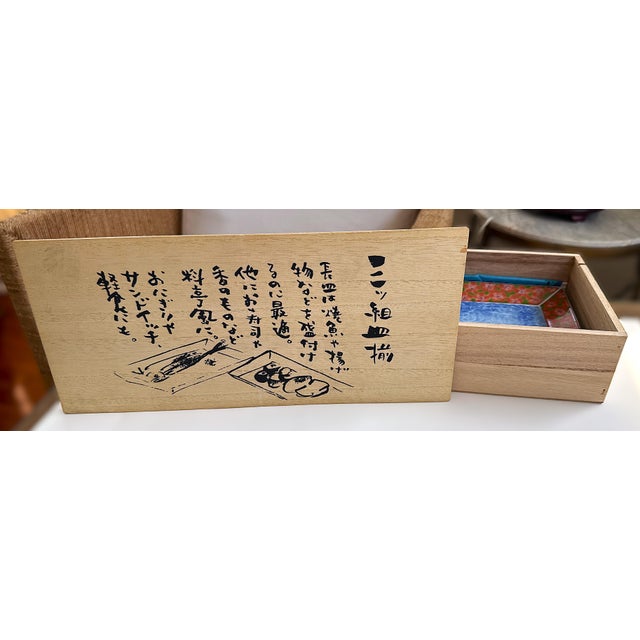 三ッ組皿揃
長皿は焼魚や揚げ
物などを盛付け
るのに最適。
他にお寿司や
香のものなど
料亭風に。
おにぎりや
サンドイッチ、
軽食にも。